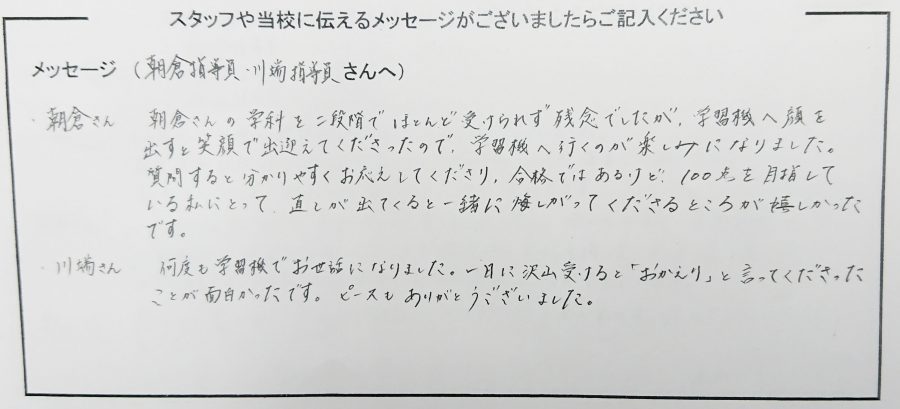 スタッフや当校に伝えるメッセージがございましたらご記入ください
メッセージ（朝倉指導員・川端指導員さんへ）
・朝倉さん 朝倉さんの学科を二段階でほとんど受けられず残念でしたが、学習機へ顔を
出すと笑顔で出迎えてくださったので、学習機へ行くのが楽しみになりました。
質問すると分かりやすくお応えしてくださり、合格ではあるけど、100点を目指して
いる私にとって、直しが出てくると一緒に悔しがってくださるところが嬉しかった
です。
・川端さん 何度も学習機でお世話になりました。一日に沢山受けると「おかえり」と言ってくださった
ことが面白かったです。ピースもありがとうございました。